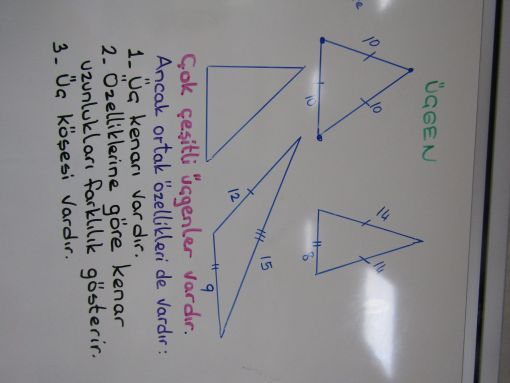 ÜÇGEN
10
10
10
14
14
8
12
15
9
Çok çeşitli üçgenler vardır.
Ancak ortak özellikleri de vardır:
1- Üç kenarı vardır.
2- Özelliklerine göre kenar
uzunlukları farklılık gösterir.
3- Üç köşesi vardır.